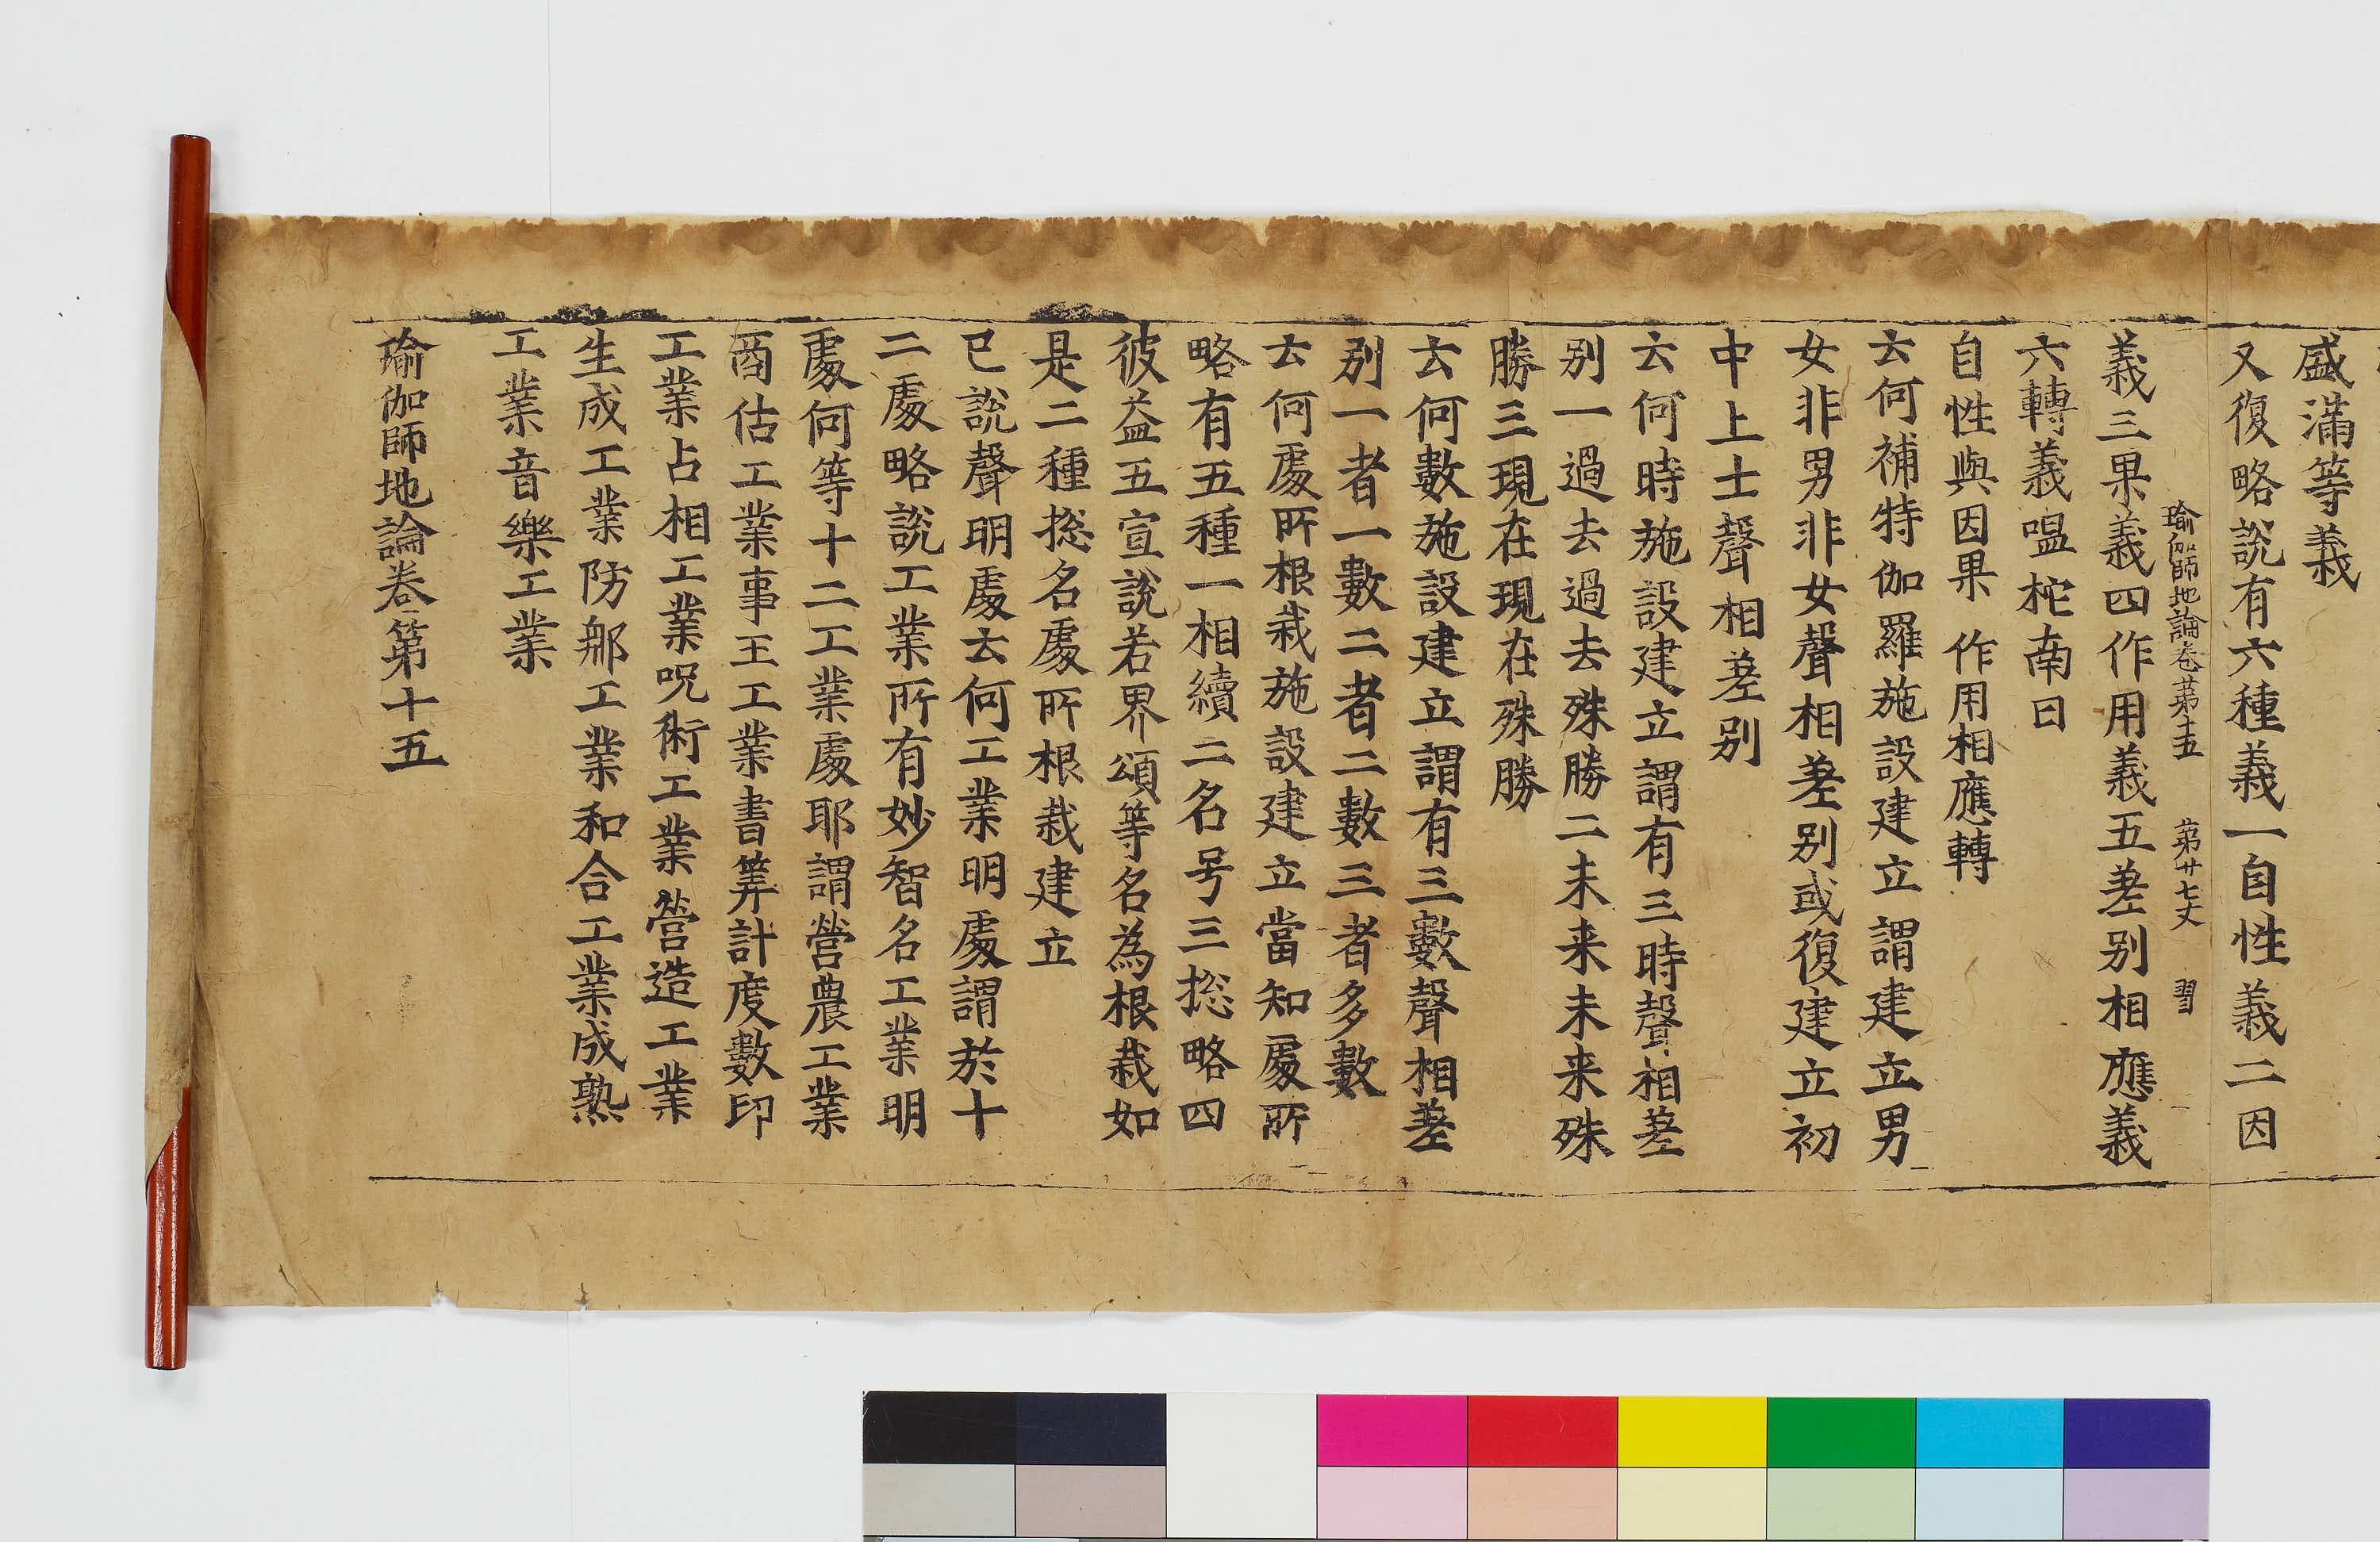 盛滿等義
又復略說有六種義一自性義二因
瑜伽師地論卷苐十五 苐廿七丈 習
義三果義四作用義五差别相應義
六轉義嗢柁南曰
自性與因果 作用相應轉
云何補特伽羅施設建立謂建立男
女非男非女聲相差别或復建立初
中上士聲相差别
云何時施設建立謂有三時聲相差
别一過去過去殊勝二未来未来殊
勝三現在現在殊勝
云何數施設建立謂有三數聲相差
别一者一數二者二數三者多數
云何處所根栽施設建立當知處所
略有五種一相續二名号三揔略四
彼益五宣說若界頌等名為根栽如
是二種揔名處所根栽建立
已說聲明處云何工業明處謂於十
二處略說工業所有妙智名工業明
處何等十二工業處耶謂營農工業
商估工業事王工業書筭計度數印
工業占相工業呪術工業營造工業
生成工業防那工業和合工業成熟
工業音樂工業
瑜伽師地論卷第十五